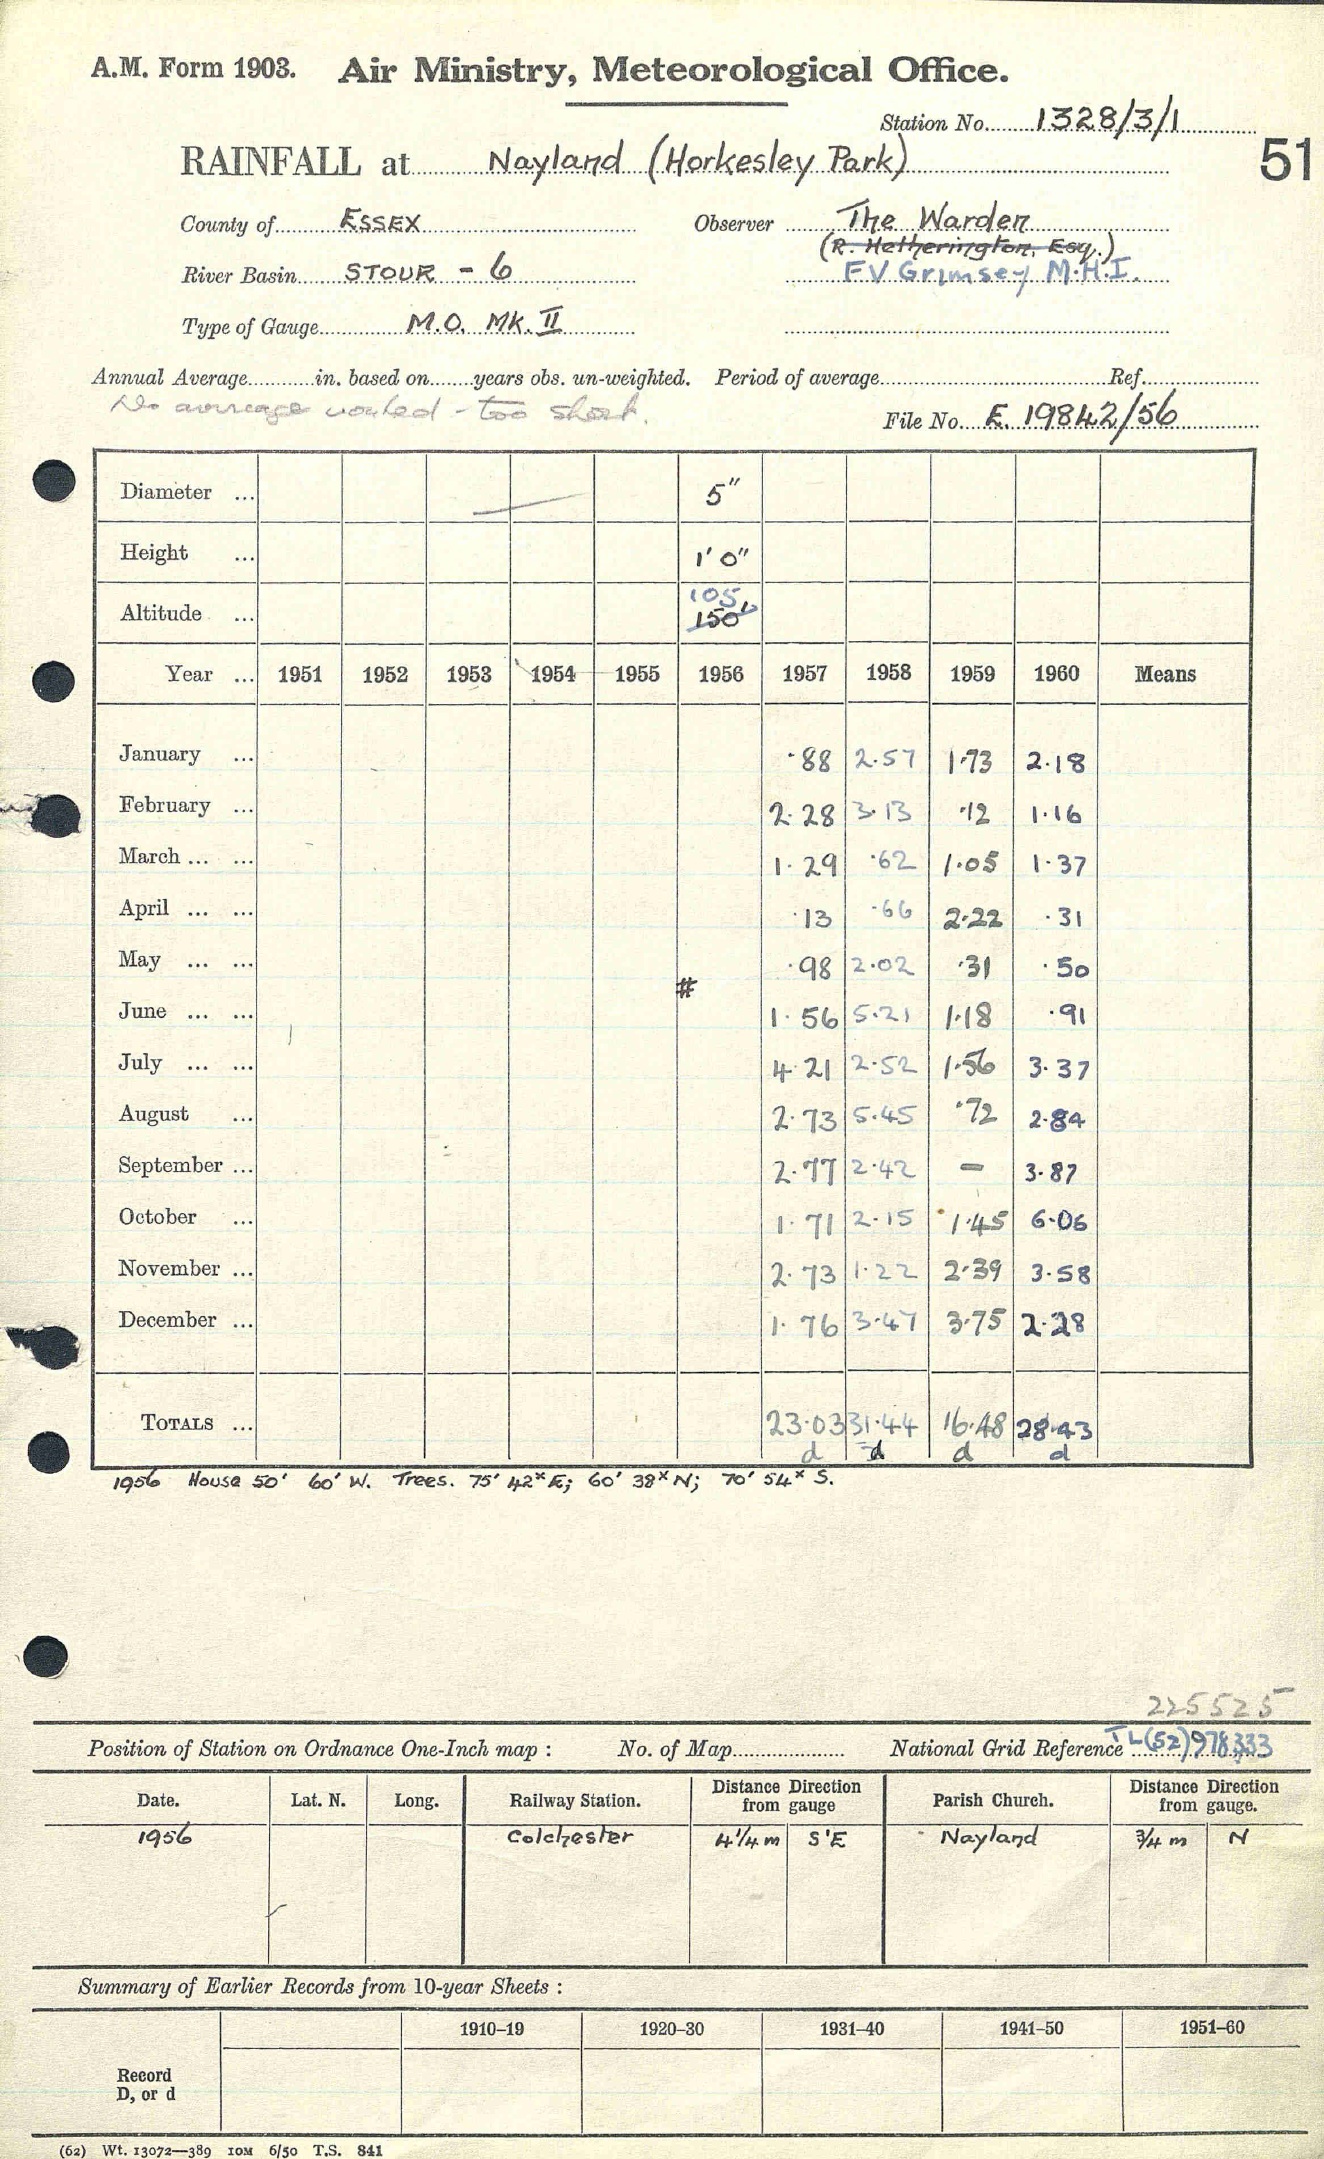 A.M. Form 1903. Air Ministry, Meteorological Office.
Station No. 1328/3/1
51
RAINFALL at Nayland (Horkesley Park)
County of ESSEX Observer The Warden
(R. Hetherington, Esq.)
River Basin STOUR - 6 F V Grimsey M.H.I.
Type of Gauge M.O. Mk. II
Annual Average in. based on years obs. un-weighted. Period of average Ref.
No average worked - too short.
File No. E. 19842/56
Diameter ... 5"
Height ... 1' 0"
105
Altitude ... 150'
Year ... 1951 1952 1953 1954 1955 1956 1957 1958 1959 1960 Means
January ... ·88 2·57 1·73 2·18
February ... 2·28 3·13 ·12 1·16
March ... ... 1·29 ·62 1·05 1·37
April ... ... ·13 ·66 2·22 ·31
May ... ... ·98 2·02 ·31 ·50
#
June ... ... 1·56 5·21 1·18 ·91
July ... ... 4·21 2·52 1·56 3·37
August ... 2·73 5·45 ·72 2·84
September ... 2·77 2·42 - 3·87
October ... 1·71 2·15 1·45 6·06
November ... 2·73 1·22 2·39 3·58
December ... 1·76 3·47 3·75 2·28
TOTALS ... 23·03 31·44 16·48 28·43
d d d d
1956 House 50' 60' W. Trees. 75' 42ˣ E; 60' 38ˣ N; 70' 54ˣ S.
225525
Position of Station on Ordnance One-Inch map : No. of Map National Grid Reference TL(52)978333
Date. Lat. N. Long. Railway Station. Distance from Direction gauge Parish Church. Distance from Direction gauge.
1956 Colchester 4¼ m S'E Nayland ¾ m N
Summary of Earlier Records from 10-year Sheets :
1910–19 1920–30 1931–40 1941–50 1951–60
Record
D, or d
(62) Wt. 13072—389 10M 6/50 T.S. 841